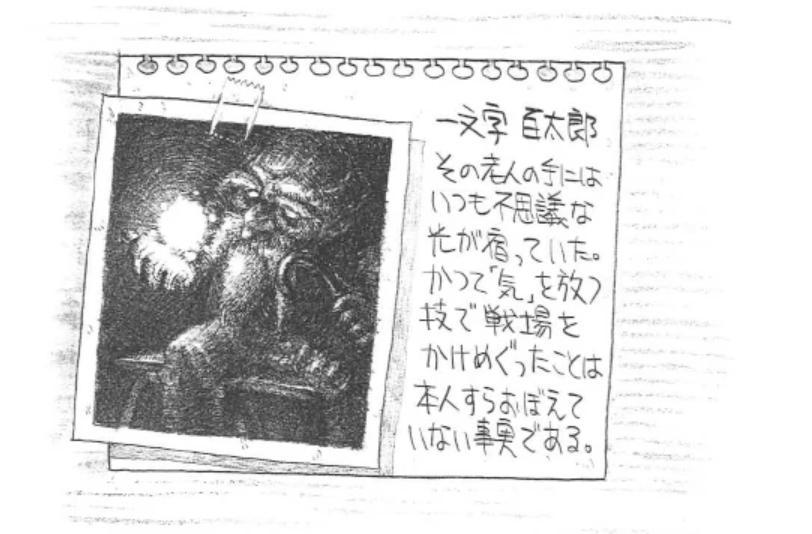 一文字 百太郎
その老人の手には
いつも不思議な
光が宿っていた。
かつて「気」を放つ
技で戦場を
かけめぐったことは
本人すらおぼえて
いない事実である。